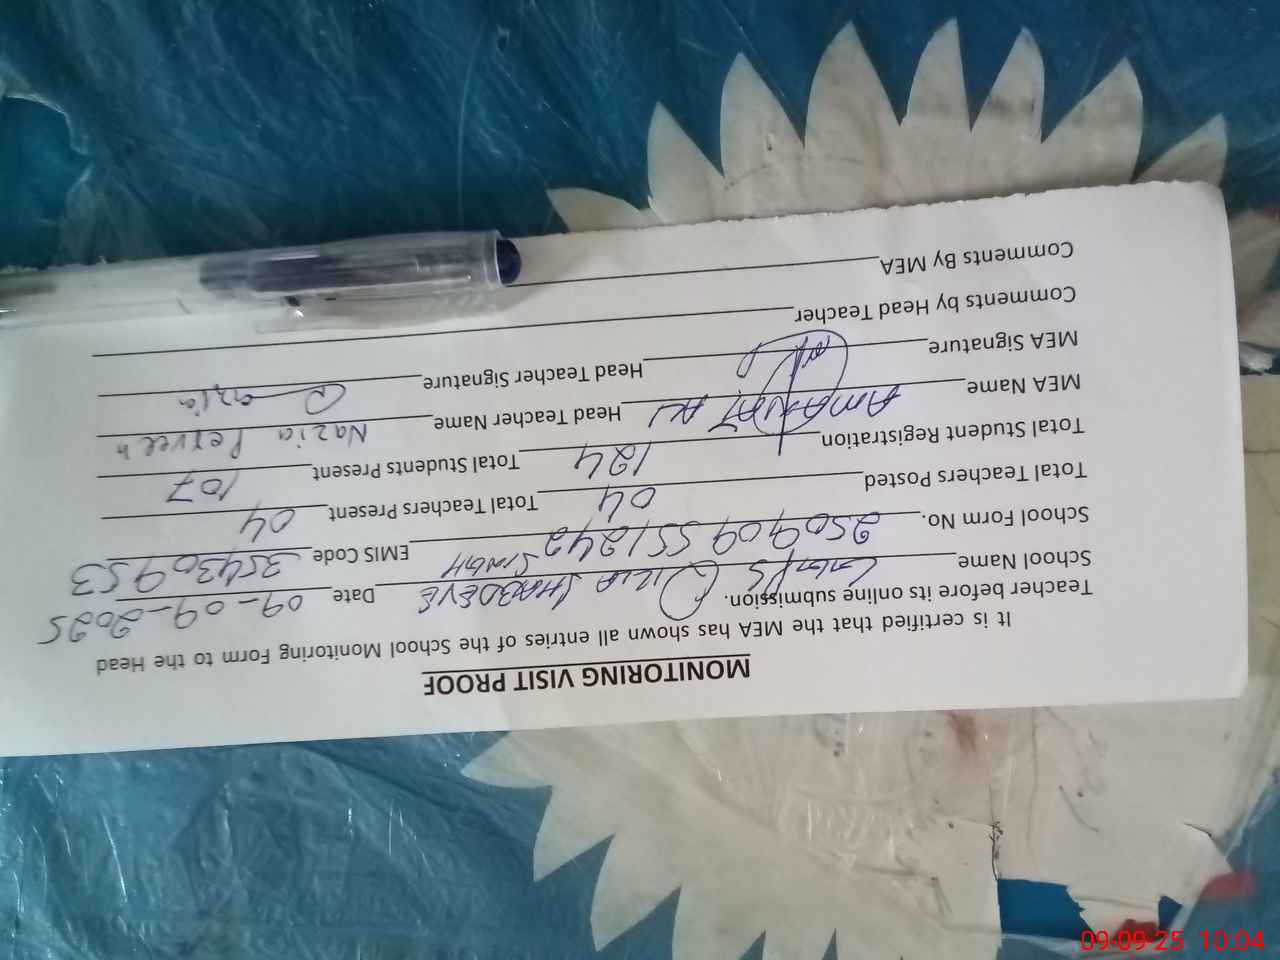 MONITORING VISIT PROOF
It is certified that the MEA has shown all entries of the School Monitoring Form to the Head
Teacher before its online submission.
School Name GMPS Qilla SHABDEVE SINGH Date 09-09-2025
School Form No. 250909551242 EMIS Code 35430953
Total Teachers Posted 04 Total Teachers Present 04
Total Student Registration 124 Total Students Present 107
MEA Name AMANAT ALI Head Teacher Name Nazia Perveen
MEA Signature Head Teacher Signature Nazia
Comments by Head Teacher
Comments By MEA
09-09-25 10:04